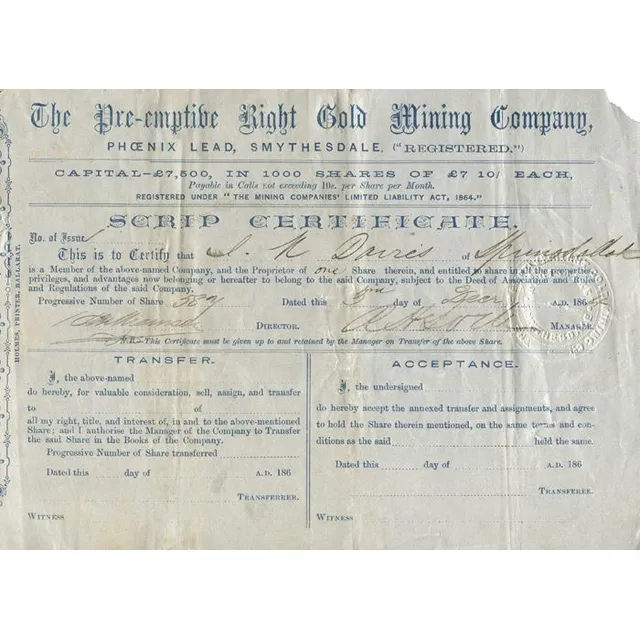 The Pre-emptive Right Gold Mining Company,
PHŒNIX LEAD, SMYTHESDALE, ("REGISTERED.")
CAPITAL—£7,500, IN 1000 SHARES OF £7 10/ EACH,
Payable in Calls not exceeding 10s. per Share per Month.
REGISTERED UNDER "THE MINING COMPANIES' LIMITED LIABILITY ACT, 1864."
SCRIP CERTIFICATE.
No. of Issue
This is to Certify that J. N Davies of
is a Member of the above-named Company, and the Proprietor of one Share therein, and entitled to share in all the properties,
privileges, and advantages now belonging or hereafter to belong to the said Company, subject to the Deed of Association and Rules
and Regulations of the said Company.
Progressive Number of Share Dated this day of Decr A.D. 186
DIRECTOR. MANAGER.
N.B.—This Certificate must be given up to and retained by the Manager on Transfer of the above Share.
HOLMES, PRINTER, BALLARAT.
TRANSFER.
I, the above-named
do hereby, for valuable consideration, sell, assign, and transfer
to of
all my right, title, and interest, of, in and to the above-mentioned
Share; and I authorise the Manager of the Company to Transfer
the said Share in the Books of the Company.
Progressive Number of Share transferred
Dated this day of A.D. 186
TRANSFERRER.
WITNESS
ACCEPTANCE.
I, the undersigned
do hereby accept the annexed transfer and assignments, and agree
to hold the Share therein mentioned, on the same terms and con-
ditions as the said held the same.
Dated this day of A.D. 186
TRANSFEREE.
WITNESS